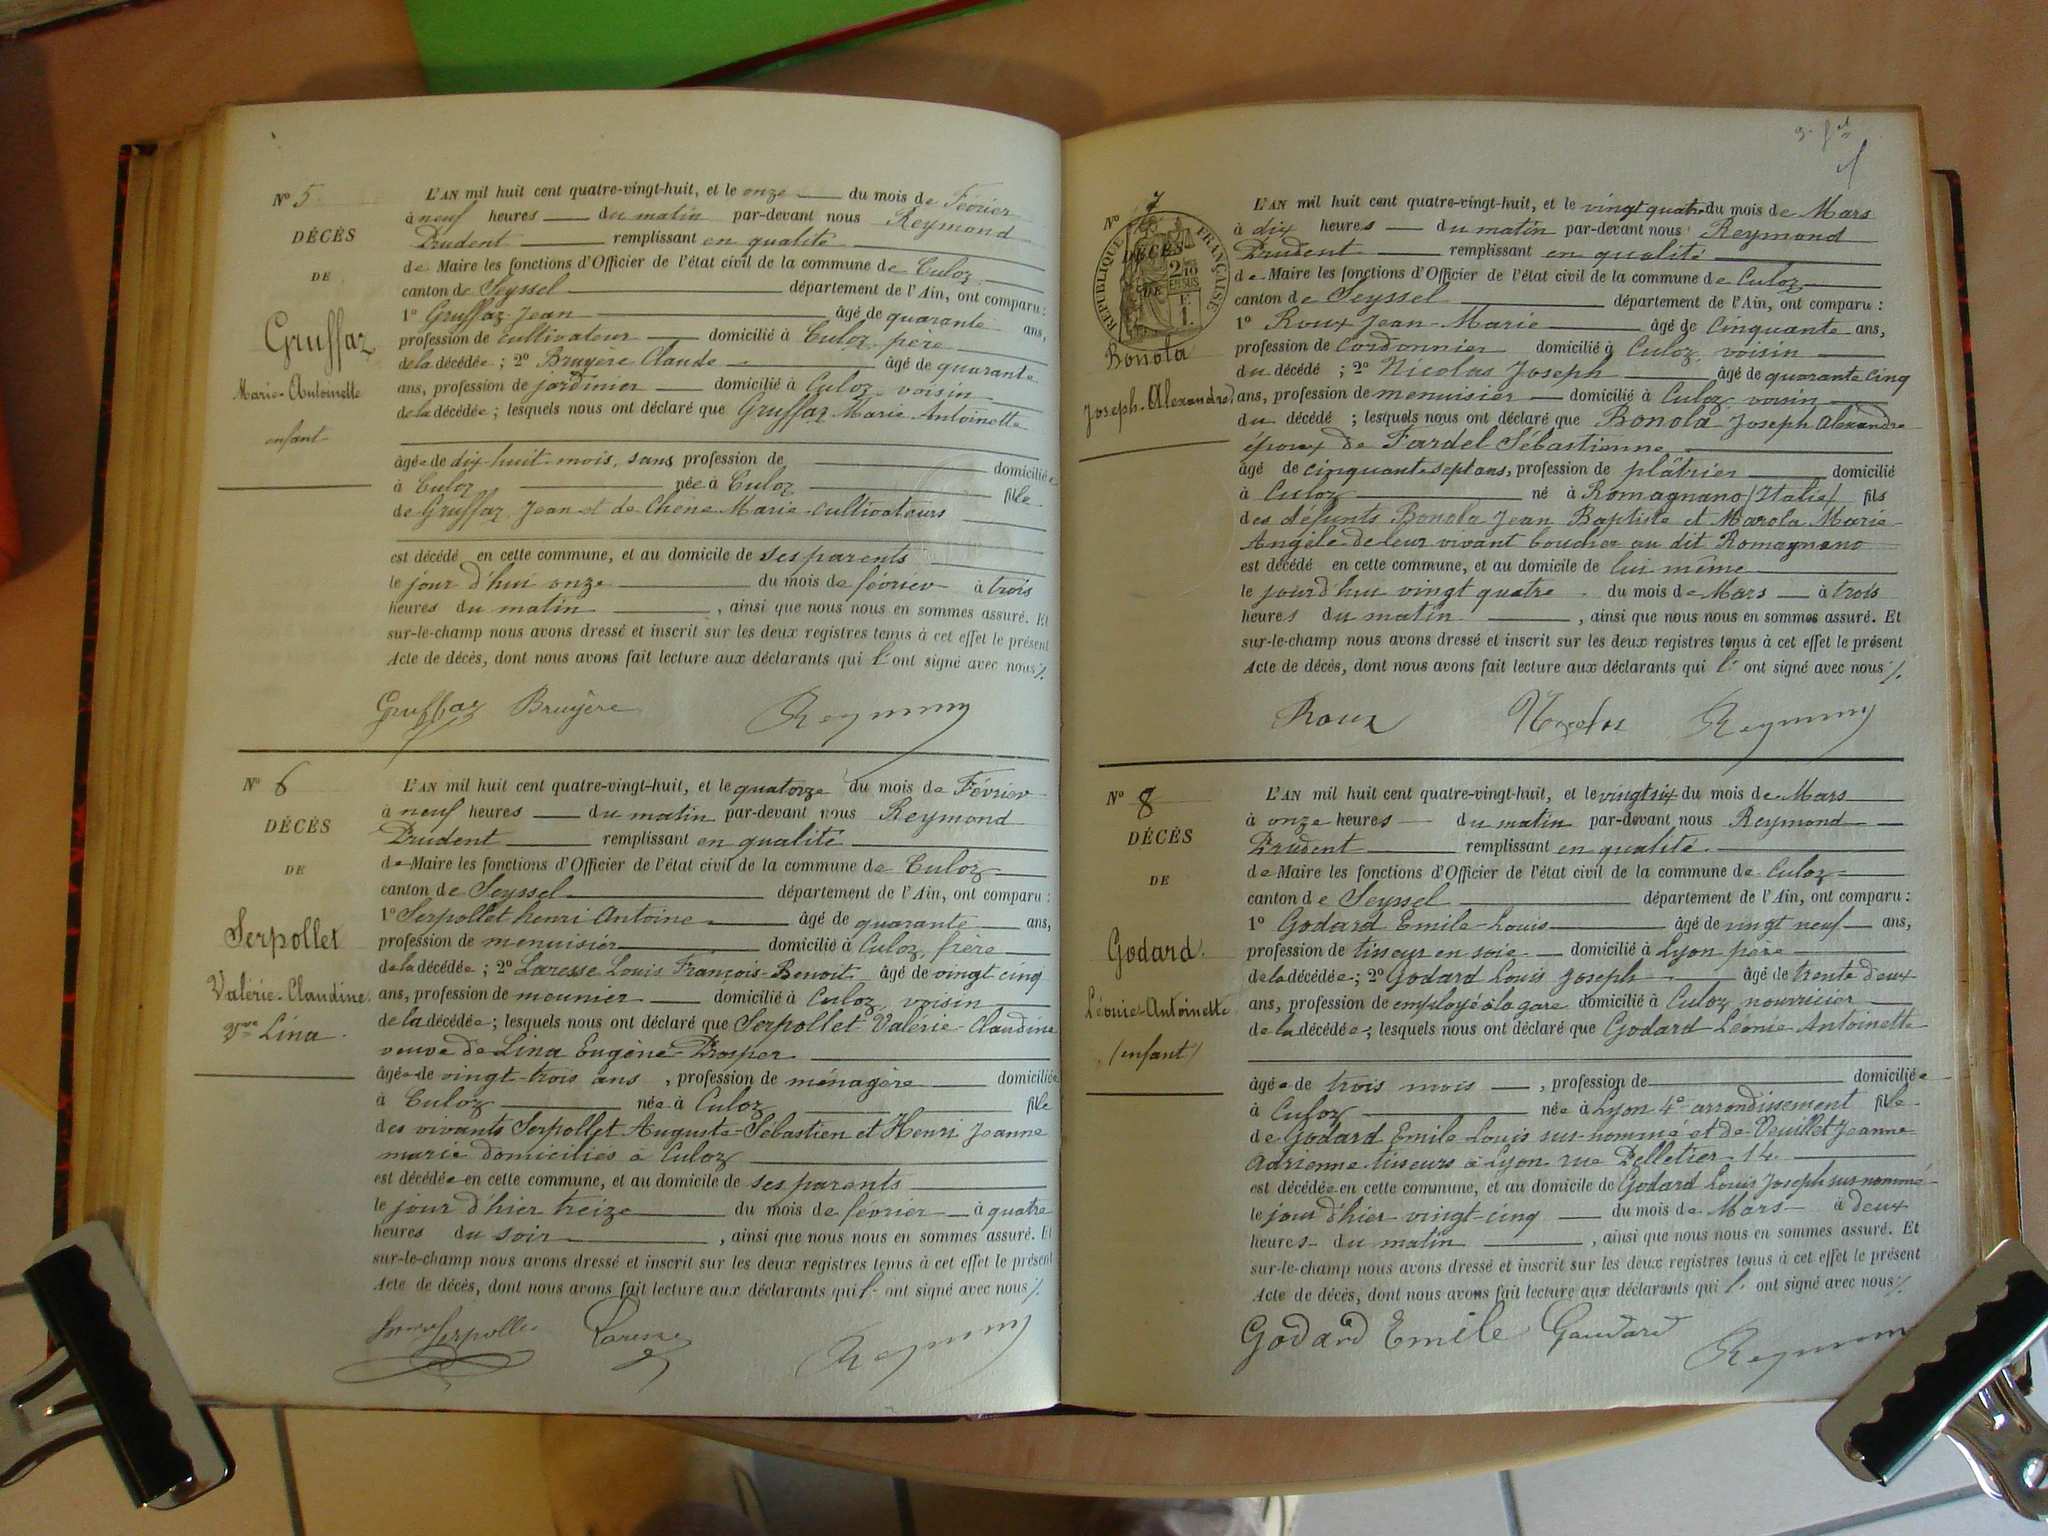 N° 5
DÉCÈS
DE
Gruffaz
Marie-Antoinette
enfant
L'AN mil huit cent quatre-vingt-huit, et le onze du mois de Février
à neuf heures du matin par-devant nous Reymond
Prudent remplissant en qualité
de Maire les fonctions d'Officier de l'état civil de la commune de Culoz
canton de Seyssel département de l'Ain, ont comparu :
1° Gruffaz Jean âgé de quarante ans,
profession de cultivateur domicilié à Culoz père
de la décédée ; 2° Bruyere Claude âgé de quarante
ans, profession de jardinier domicilié à Culoz voisin
de la décédée ; lesquels nous ont déclaré que Gruffaz Marie-Antoinette
âgée de dix-huit mois, sans profession de domiciliée
à Culoz née à Culoz fille
de Gruffaz Jean et de Chêne Marie-cultivateurs
est décédé en cette commune, et au domicile de ses parents
le jour d'hui onze du mois de février à trois
heures du matin , ainsi que nous nous en sommes assuré. Et
sur-le-champ nous avons dressé et inscrit sur les deux registres tenus à cet effet le présent
Acte de décès, dont nous avons fait lecture aux déclarants qui l' ont signé avec nous ./.
Gruffaz Bruyère Reymond
N° 6
DÉCÈS
DE
Serpollet
Valérie-Claudine
Vve Lina
L'AN mil huit cent quatre-vingt-huit, et le quatorze du mois de Février
à neuf heures du matin par-devant nous Reymond
Prudent remplissant en qualité
de Maire les fonctions d'Officier de l'état civil de la commune de Culoz
canton de Seyssel département de l'Ain, ont comparu :
1° Serpollet henri Antoine âgé de quarante ans,
profession de menuisier domicilié à Culoz, frère
de la décédée ; 2° Laresse Louis François-Benoit âgé de vingt cinq
ans, profession de meunier domicilié à Culoz voisin
de la décédée ; lesquels nous ont déclaré que Serpollet Valérie Claudine
veuve de Lina Eugène-Prosper
âgée de vingt-trois ans , profession de ménagère domiciliée
à Culoz née à Culoz fille
des vivants Serpollet Auguste-Sébastien et Henri Jeanne
marie domiciliés à Culoz
est décédée en cette commune, et au domicile de ses parents
le jour d'hier treize du mois de février à quatre
heures du soir , ainsi que nous nous en sommes assuré. Et
sur-le-champ nous avons dressé et inscrit sur les deux registres tenus à cet effet le présent
Acte de décès, dont nous avons fait lecture aux déclarants qui l' ont signé avec nous ./.
Serpollet Laresse Reymond
N° 7
RÉPUBLIQUE FRANÇAISE
2/10 EN SUS
DÉCÈS
DE
Bonola
Joseph-Alexandre
L'AN mil huit cent quatre-vingt-huit, et le vingt quatre du mois de Mars
à dix heures du matin par-devant nous Reymond
Prudent remplissant en qualité
de Maire les fonctions d'Officier de l'état civil de la commune de Culoz
canton de Seyssel département de l'Ain, ont comparu :
1° Roux Jean-Marie âgé de cinquante ans,
profession de cordonnier domicilié à Culoz voisin
du décédé ; 2° Nicolas Joseph âgé de quarante cinq
ans, profession de menuisier domicilié à Culoz voisin
du décédé ; lesquels nous ont déclaré que Bonola Joseph Alexandre
époux de Fardel Sébastienne
âgé de cinquante sept ans, profession de plâtrier domicilié
à Culoz né à Romagnano (Italie) fils
des défunts Bonola Jean Baptiste et Marola Marie
Angèle de leur vivant boucher au dit Romagnano
est décédé en cette commune, et au domicile de lui même
le jourd'hui vingt quatre du mois de Mars à trois
heures du matin , ainsi que nous nous en sommes assuré. Et
sur-le-champ nous avons dressé et inscrit sur les deux registres tenus à cet effet le présent
Acte de décès, dont nous avons fait lecture aux déclarants qui l' ont signé avec nous ./.
Roux Nicolas Reymond
N° 8
DÉCÈS
DE
Godard
Léonie-Antoinette
(enfant)
L'AN mil huit cent quatre-vingt-huit, et le vingt six du mois de Mars
à onze heures du matin par-devant nous Reymond
Prudent remplissant en qualité
de Maire les fonctions d'Officier de l'état civil de la commune de Culoz
canton de Seyssel département de l'Ain, ont comparu :
1° Godard Emile-Louis âgé de vingt neuf ans,
profession de tisseur en soie domicilié à Lyon père
de la décédée ; 2° Godard Louis Joseph âgé de trente deux
ans, profession de employé à la gare domicilié à Culoz nourricier
de la décédée ; lesquels nous ont déclaré que Godard Léonie Antoinette
âgée de trois mois , profession de domiciliée
à Culoz née à Lyon 4e arrondissement fille
de Godard Emile-Louis sus-nommé et de Veuillet Jeanne
Adrienne tisseurs à Lyon rue Pelletier 14
est décédée en cette commune, et au domicile de Godard Louis Joseph sus-nommé
le jour d'hier vingt-cinq du mois de Mars à deux
heures du matin , ainsi que nous nous en sommes assuré. Et
sur-le-champ nous avons dressé et inscrit sur les deux registres tenus à cet effet le présent
Acte de décès, dont nous avons fait lecture aux déclarants qui l' ont signé avec nous ./.
Godard Emile Gaudard Reymond